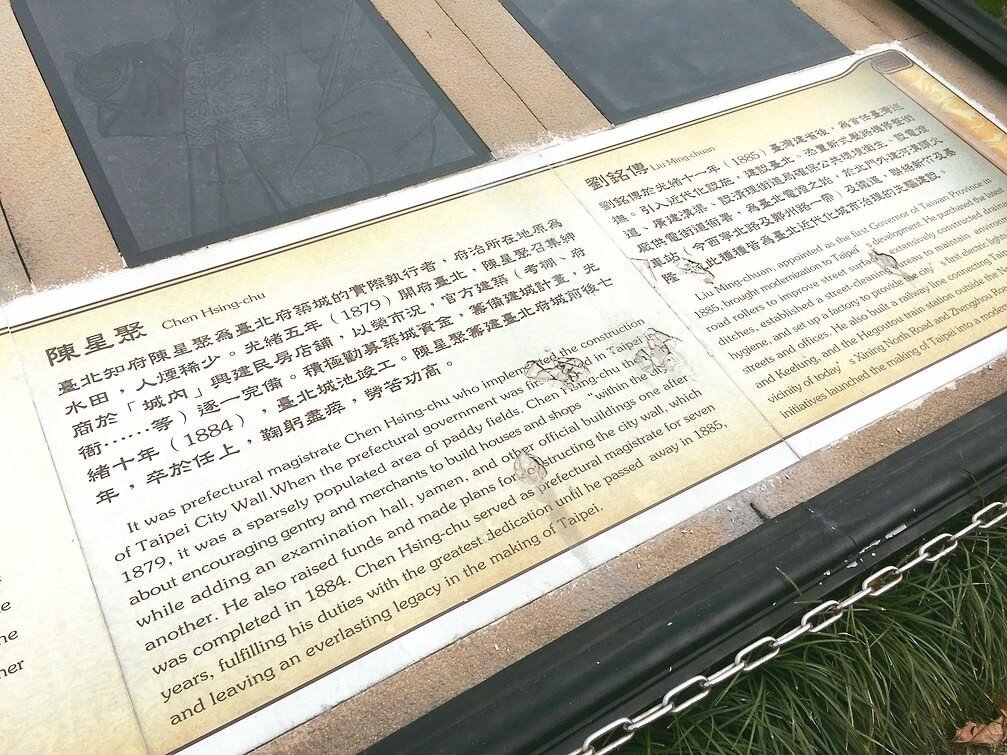 陳星聚 Chen Hsing-chu
臺北知府陳星聚為臺北府築城的實際執行者，府治所在地原為
水田，人煙稀少。光緒五年（1879）開府臺北，陳星聚召集紳
商於「城內」興建民房店舖，以榮市況，官方建築（考棚、府
衙……等）逐一完備。積極勸募築城資金，籌備建城計畫，光
緒十年（1884），臺北城池竣工。陳星聚籌建臺北府城前後七
年，卒於任上，鞠躬盡瘁，勞苦功高。
It was prefectural magistrate Chen Hsing-chu who implemented the construction
of Taipei City Wall. When the prefectural government was in Taipei in
1879, it was a sparsely populated area of paddy fields. Chen Hsing-chu
about encouraging gentry and merchants to build houses and shops "within the
while adding an examination hall, yamen, and other official buildings one after
another. He also raised funds and made plans for constructing the city wall, which
was completed in 1884. Chen Hsing-chu served as prefectural magistrate for seven
years, fulfilling his duties with the greatest dedication until he passed away in 1885,
and leaving an everlasting legacy in the making of Taipei.
劉銘傳 Liu Ming-chuan
劉銘傳於光緒十一年（1885）臺灣建省後，為首任臺灣巡
撫。引入近代化設施，建設臺北，添置新式壓路機修整街
道、廣建溝渠，設清理街道局確保公共環境衛生。設電燈
廠供電街道衙署，為臺北電燈之始，於北門外建河溝頭火
車站（今西寧北路及鄭州路一帶）及鐵道，聯絡新竹及基
隆 此種種皆為臺北近代化城市治理的主軸建設。
Liu Ming-chuan, appointed as the first Governor of Taiwan Province in
1885, brought modernization to Taipei's development. He purchased the latest
road rollers to improve street surfaces, extensively constructed drainage
ditches, established a street-cleaning bureau to maintain
hygiene, and set up a factory to provide the city's first electric
streets and offices. He also built a railway line connecting
and Keelung, and the Hegoutou train station outside the
vicinity of today's Xining North Road and Zhengzhou
initiatives launched the making of Taipei into a